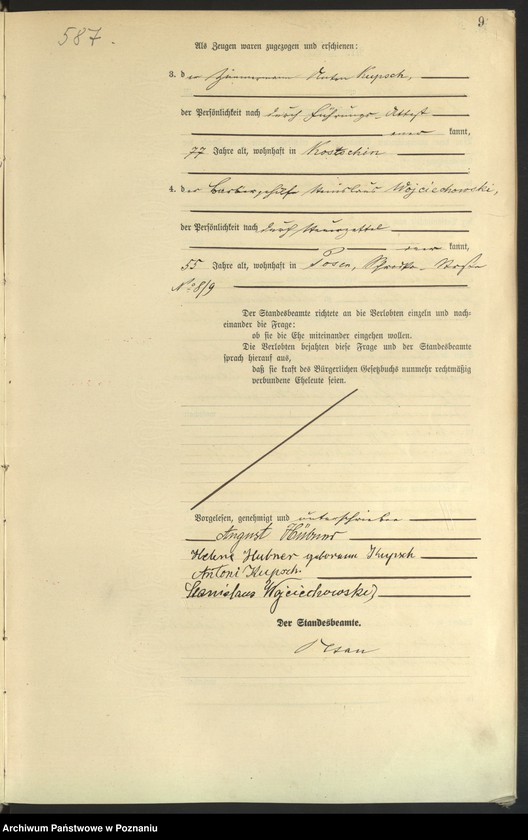 9
587.
Als Zeugen waren zugezogen und erschienen:
3. der Zimmermann Anton Kupsch,
der Persönlichkeit nach durch Führungs-Attest
kannt,
77 Jahre alt, wohnhaft in Kostschin
4. der Barbiergehilfe Stanislaus Wojciechowski,
der Persönlichkeit nach durch Steuerzettel
kannt,
55 Jahre alt, wohnhaft in Posen, Straße
No 8/9
Der Standesbeamte richtete an die Verlobten einzeln und nach=
einander die Frage:
ob sie die Ehe miteinander eingehen wollen.
Die Verlobten bejahten diese Frage und der Standesbeamte
sprach hierauf aus,
daß sie kraft des Bürgerlichen Gesetzbuchs nunmehr rechtmäßig
verbundene Eheleute seien.
Vorgelesen, genehmigt und unterschrieben
August Hübner
Helene Hubner geborene Kupsch
Antoni Kupsch.
Stanislaus Wojciechowski
Der Standesbeamte.
Archiwum Państwowe w Poznaniu